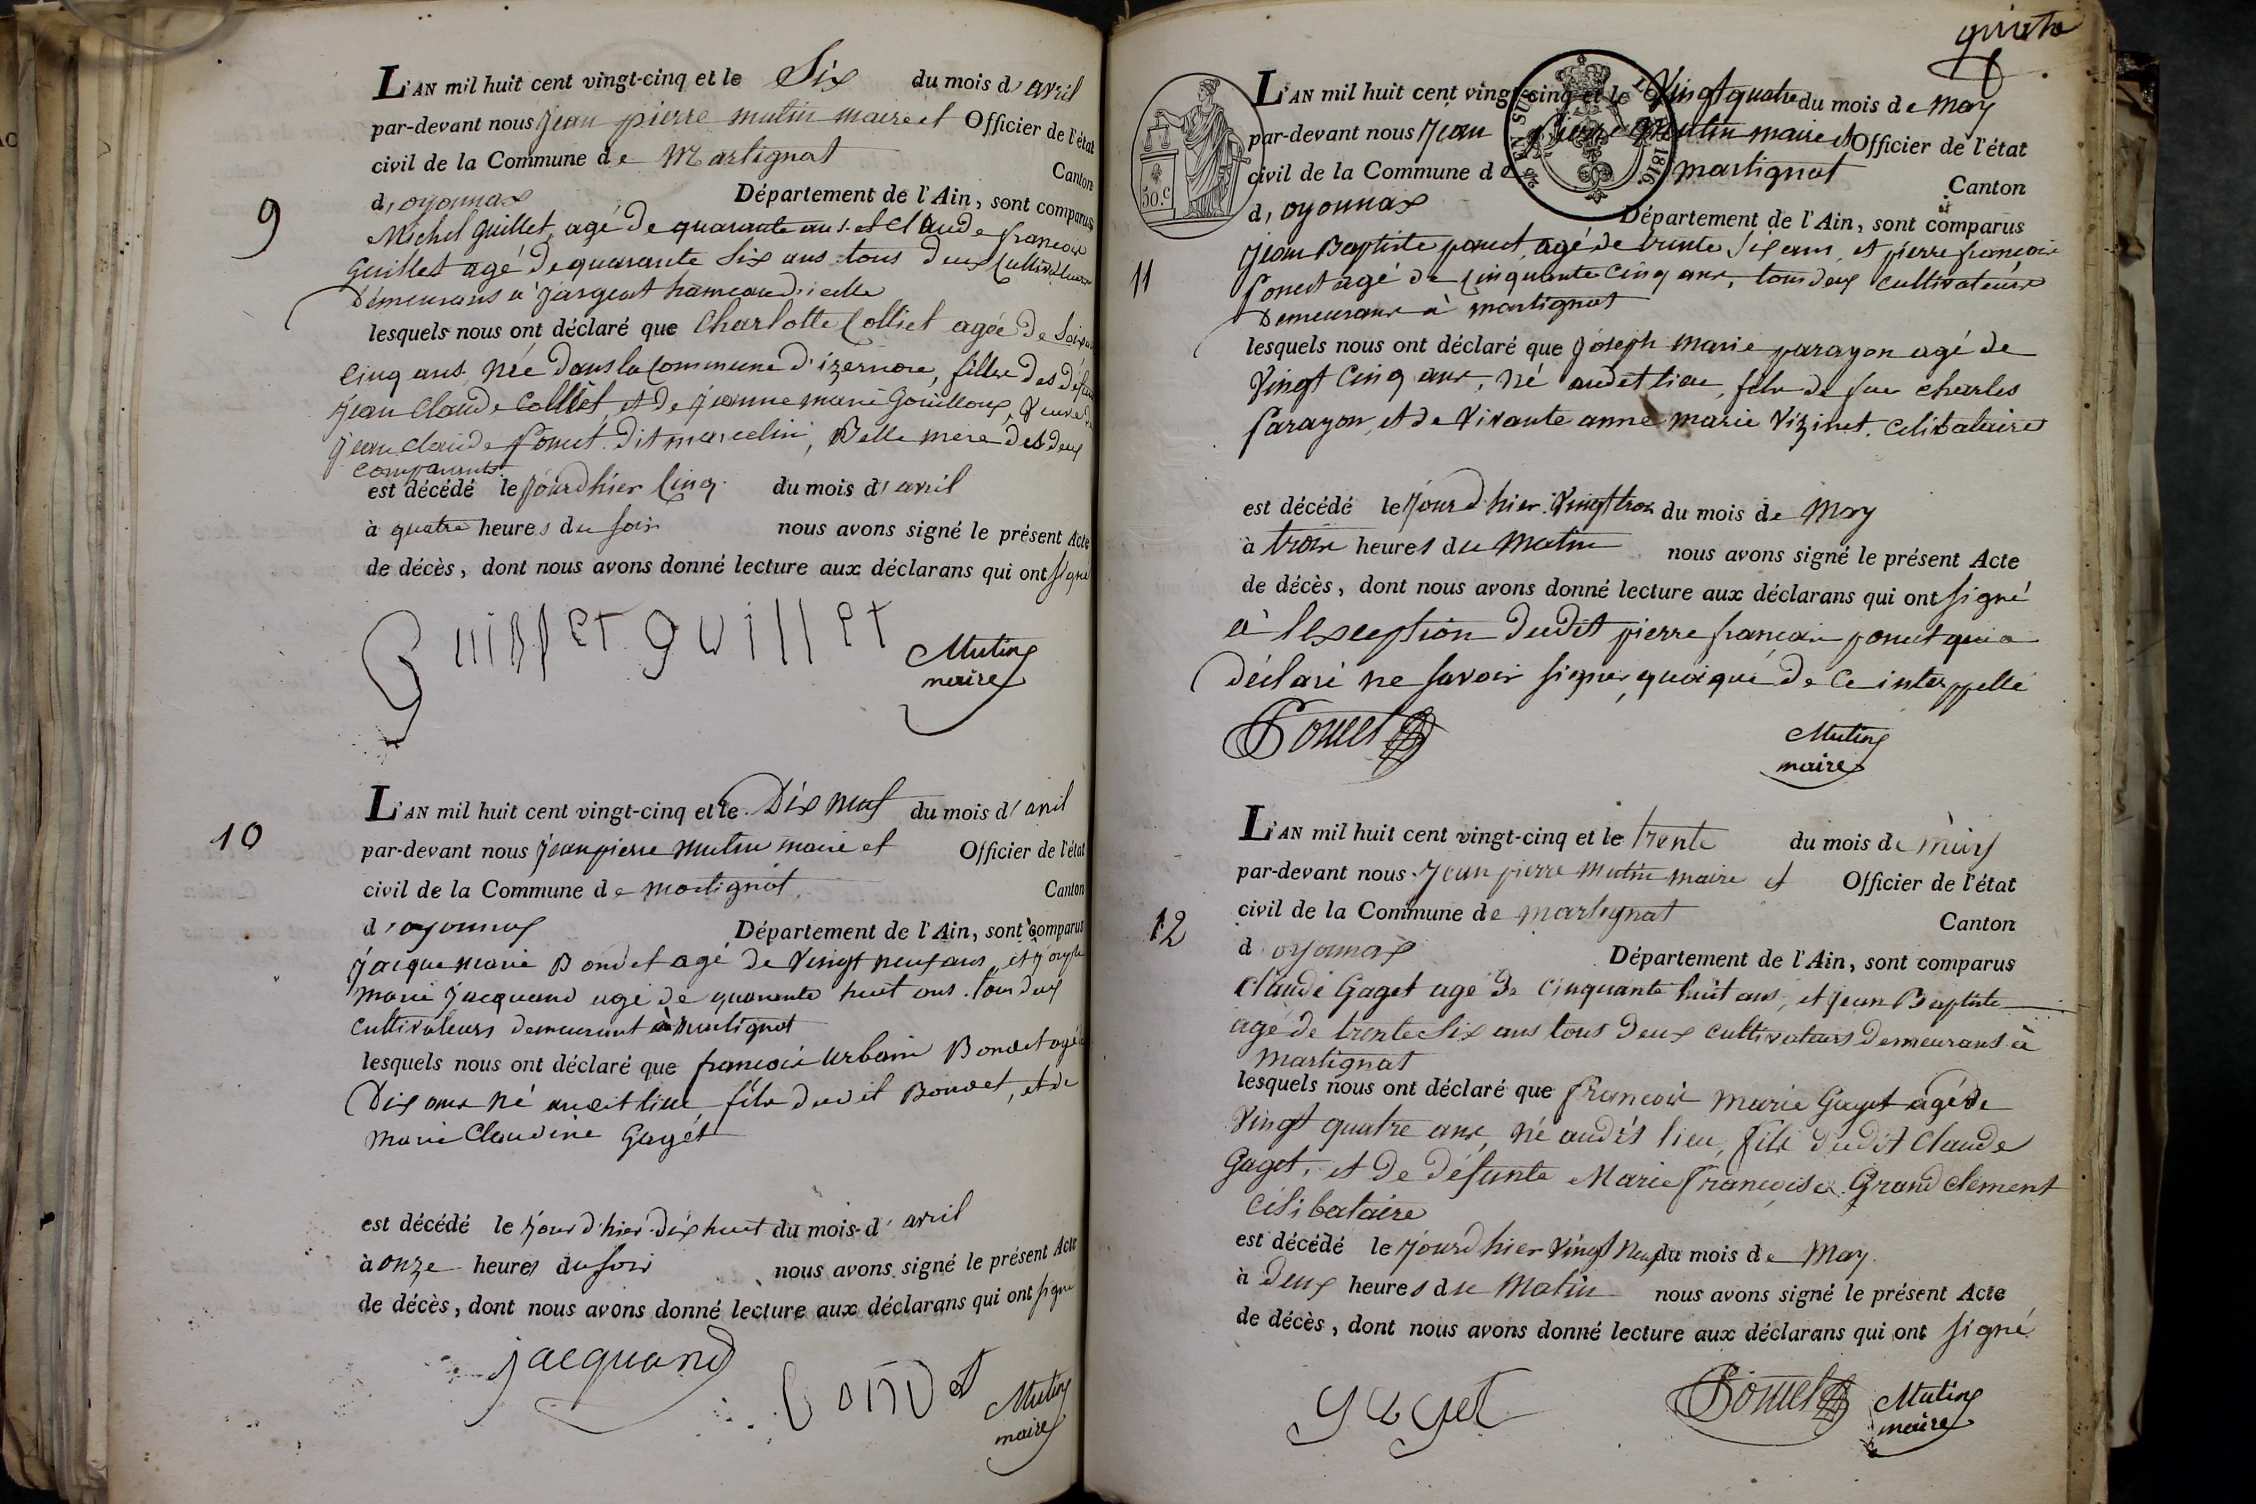 9
L'AN mil huit cent vingt-cinq et le Six du mois d'avril
par-devant nous Jean pierre mutin maire et Officier de l'état
civil de la Commune de Martignat Canton
d'oyonnax Département de l'Ain, sont comparus
Michel Guillet, agé de quarante ans et Claude francois
Guillet agé de quarante Six ans tous deux Cultivateurs
Demeurans à Jargeat hameau d'icelle
lesquels nous ont déclaré que Charlotte Colliet agée de
Cinq ans née dans la commune d'izernore, fille des
Jean Claude Colliet, et de jeanne marie Gouilloux, veuve
jean claude Ponct dit marcelin, Belle mere des deux
comparants
est décédé le jourd'hier Cinq du mois d'avril
à quatre heures du soir nous avons signé le présent Acte
de décès, dont nous avons donné lecture aux déclarans qui ont signé
Guillet guillet Mutin
maire
10
L'AN mil huit cent vingt-cinq et le Dix neuf du mois d'avril
par-devant nous jean pierre Mutin maire et Officier de l'état
civil de la Commune de martignat Canton
d'oyonnax Département de l'Ain, sont comparus
jacque marie Bondet agé de vingt neuf ans, et joseph
marie jacquand agé de quarante huit ans tous deux
cultivateurs demeurant à martignat
lesquels nous ont déclaré que francois Urbain Bondet agé
Dix ans né audit lieu, fils dudit Bondet, et de
marie Claudine Gagét
est décédé le jourd'hier dix huit du mois d'avril
à onze heures du soir nous avons signé le présent Acte
de décès, dont nous avons donné lecture aux déclarans qui ont signé
jacquand
bondet Mutin
maire
50.c
EN SUS 1816
11
L'AN mil huit cent vingt-cinq et le Vingt quatre du mois de may
par-devant nous Jean pierre Mutin maire et Officier de l'état
civil de la Commune de martignat Canton
d'oyonnax Département de l'Ain, sont comparus
jean Baptiste ponct, agé de trente six ans, et pierre francois
Ponct agé de Cinquante Cinq ans, tous deux cultivateurs
Demeurans à martignat
lesquels nous ont déclaré que joseph marie parayon agé de
Vingt Cinq ans, né audit lieu, fils de feu charles
Parayon, et de vivante anne marie Vizinet. Célibataire
est décédé le jourd'hier Vingt trois du mois de may
à trois heures du Matin nous avons signé le présent Acte
de décès, dont nous avons donné lecture aux déclarans qui ont signé
à l'exception dudit pierre francois ponct qui a
déclaré ne savoir signer, quoique de ce interppellé
Ponct Mutin
maire
12
L'AN mil huit cent vingt-cinq et le trente du mois de may
par-devant nous Jean pierre Mutin maire et Officier de l'état
civil de la Commune de martignat Canton
d'oyonnax Département de l'Ain, sont comparus
Claude Gaget agé de Cinquante huit ans, et Jean Baptiste
agé de trente Six ans tous deux cultivateurs Demeurans à
Martignat
lesquels nous ont déclaré que francois Marie Gaget agé de
Vingt quatre ans, né audit lieu, fils dudit Claude
Gaget, et de défunte Marie francoise Grand clement
Célibataire
est décédé le jourd'hier Vingt neuf du mois de May
à deux heures du Matin nous avons signé le présent Acte
de décès, dont nous avons donné lecture aux déclarans qui ont signé
gaget Ponct Mutin
maire